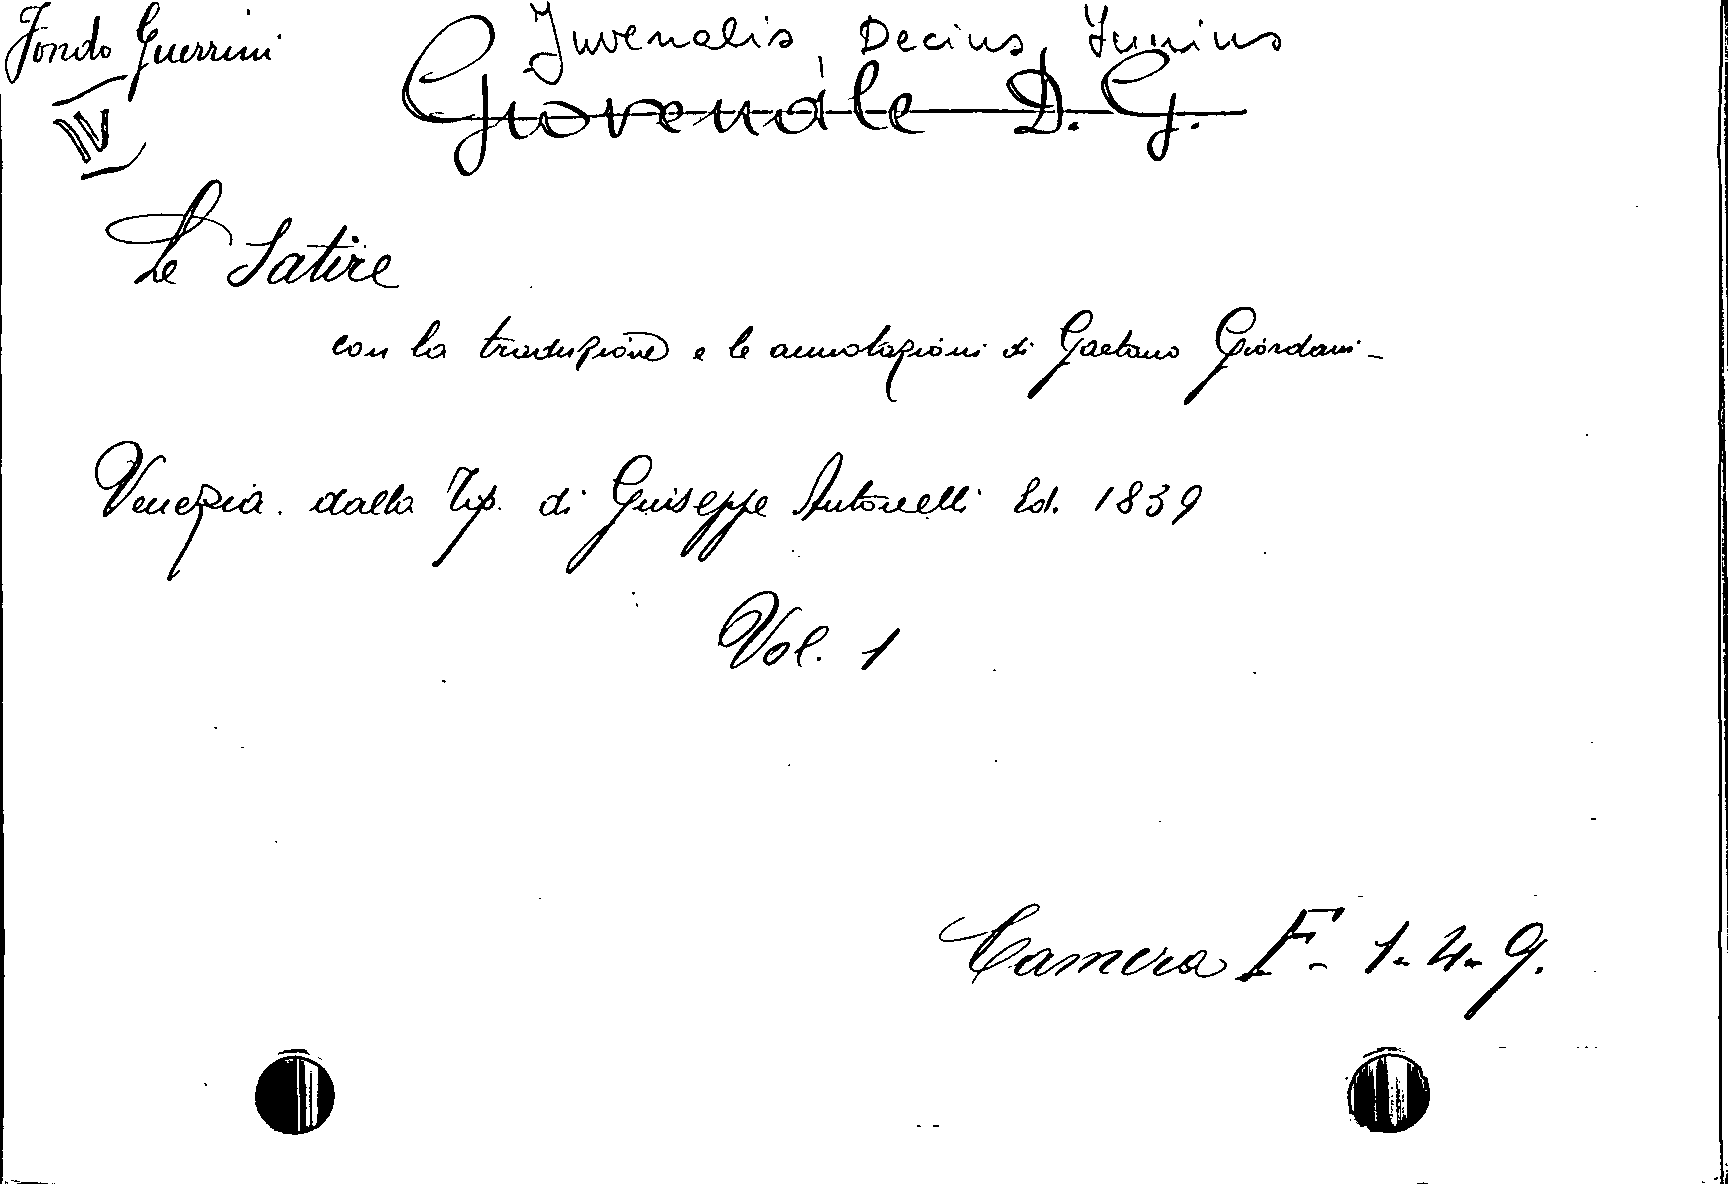 Fondo Guerrini
IV
Juvenalis, Decius Junius
Giovenale D. G.
Le Satire
con la traduzione e le annotazioni di Gaetano Giordani -
Venezia. dalla Tip. di Giuseppe Antonelli Ed. 1839
Vol. 1
Camera F- 1-4-9.